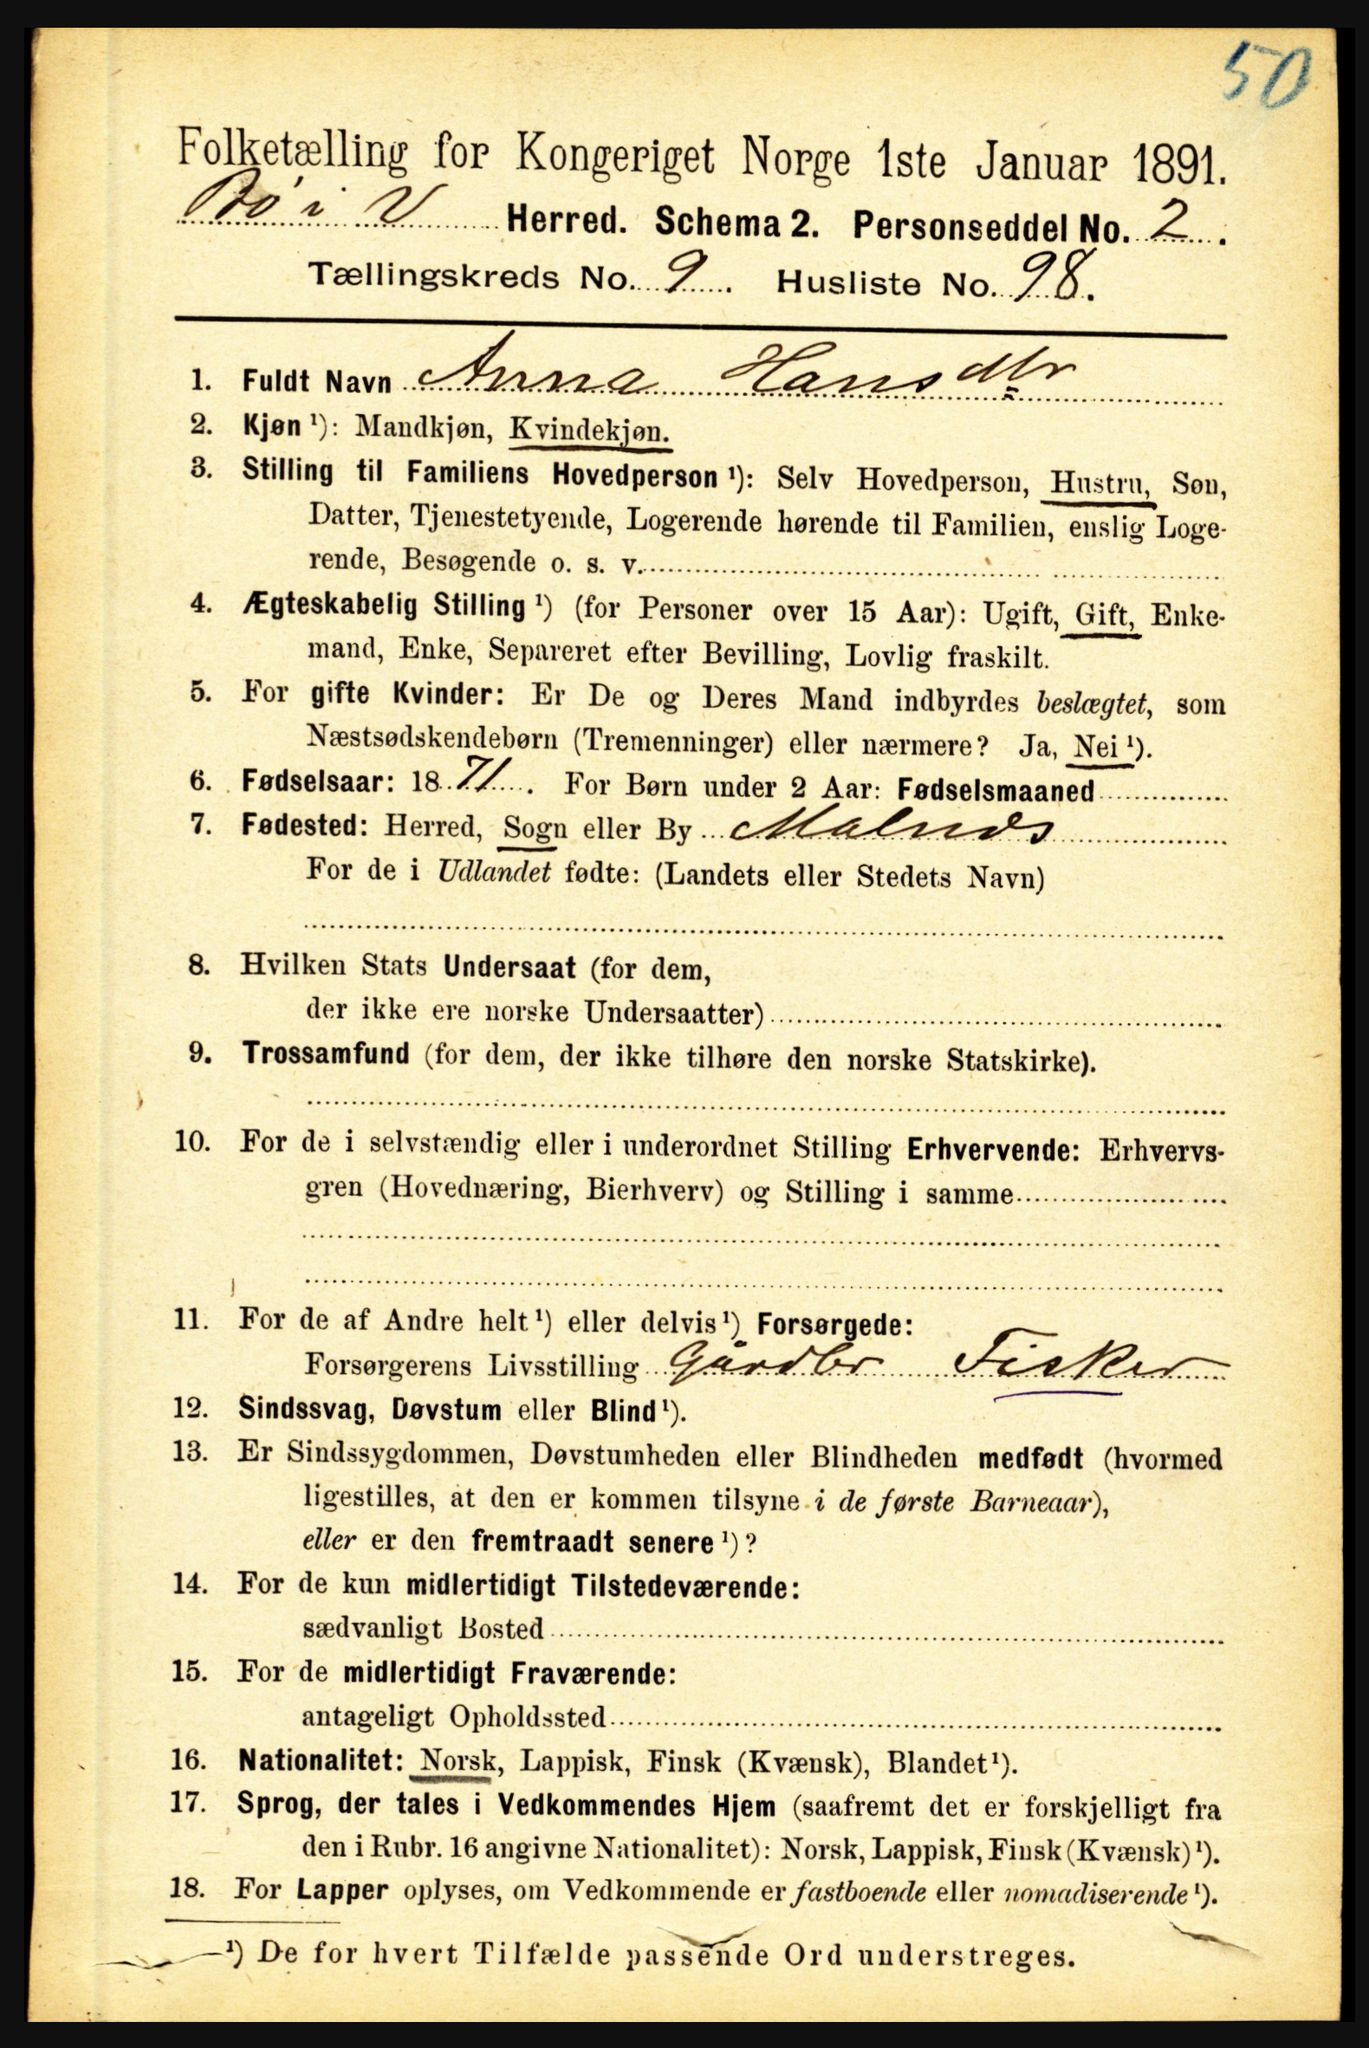 50
Folketælling for Kongeriget Norge 1ste Januar 1891.
Bø i V Herred. Schema 2. Personseddel No. 2.
Tællingskreds No. 9. Husliste No. 98.
1. Fuldt Navn Anna Hansdtr
2. Kjøn ¹): Mandkjøn, Kvindekjøn.
3. Stilling til Familiens Hovedperson ¹): Selv Hovedperson, Hustru, Søn,
Datter, Tjenestetyende, Logerende hørende til Familien, enslig Loge-
rende, Besøgende o. s. v.
4. Ægteskabelig Stilling ¹) (for Personer over 15 Aar): Ugift, Gift, Enke-
mand, Enke, Separeret efter Bevilling, Lovlig fraskilt.
5. For gifte Kvinder: Er De og Deres Mand indbyrdes beslægtet, som
Næstsødskendebørn (Tremenninger) eller nærmere? Ja, Nei ¹).
6. Fødselsaar: 1871. For Børn under 2 Aar: Fødselsmaaned
7. Fødested: Herred, Sogn eller By Malnæs
For de i Udlandet fødte: (Landets eller Stedets Navn)
8. Hvilken Stats Undersaat (for dem,
der ikke ere norske Undersaatter)
9. Trossamfund (for dem, der ikke tilhøre den norske Statskirke).
10. For de i selvstændig eller i underordnet Stilling Erhvervende: Erhvervs-
gren (Hovednæring, Bierhverv) og Stilling i samme
11. For de af Andre helt ¹) eller delvis ¹) Forsørgede:
Forsørgerens Livsstilling Gårdbr Fisker
12. Sindssvag, Døvstum eller Blind ¹).
13. Er Sindssygdommen, Døvstumheden eller Blindheden medfødt (hvormed
ligestilles, at den er kommen tilsyne i de første Barneaar),
eller er den fremtraadt senere ¹)?
14. For de kun midlertidigt Tilstedeværende:
sædvanligt Bosted
15. For de midlertidigt Fraværende:
antageligt Opholdssted
16. Nationalitet: Norsk, Lappisk, Finsk (Kvænsk), Blandet ¹).
17. Sprog, der tales i Vedkommendes Hjem (saafremt det er forskjelligt fra
den i Rubr. 16 angivne Nationalitet): Norsk, Lappisk, Finsk (Kvænsk) ¹).
18. For Lapper oplyses, om Vedkommende er fastboende eller nomadiserende ¹).
¹) De for hvert Tilfælde passende Ord understreges.